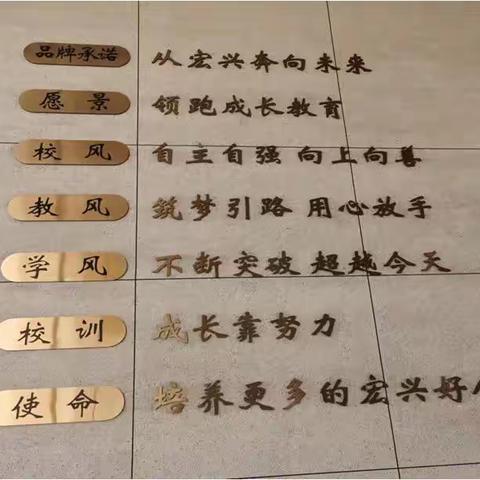 品牌承诺 从宏兴奔向未来
愿景 领跑成长教育
校风 自主自强 向上向善
教风 筑梦引路 用心放手
学风 不断突破 超越今天
校训 成长靠努力
使命 培养更多的宏兴好